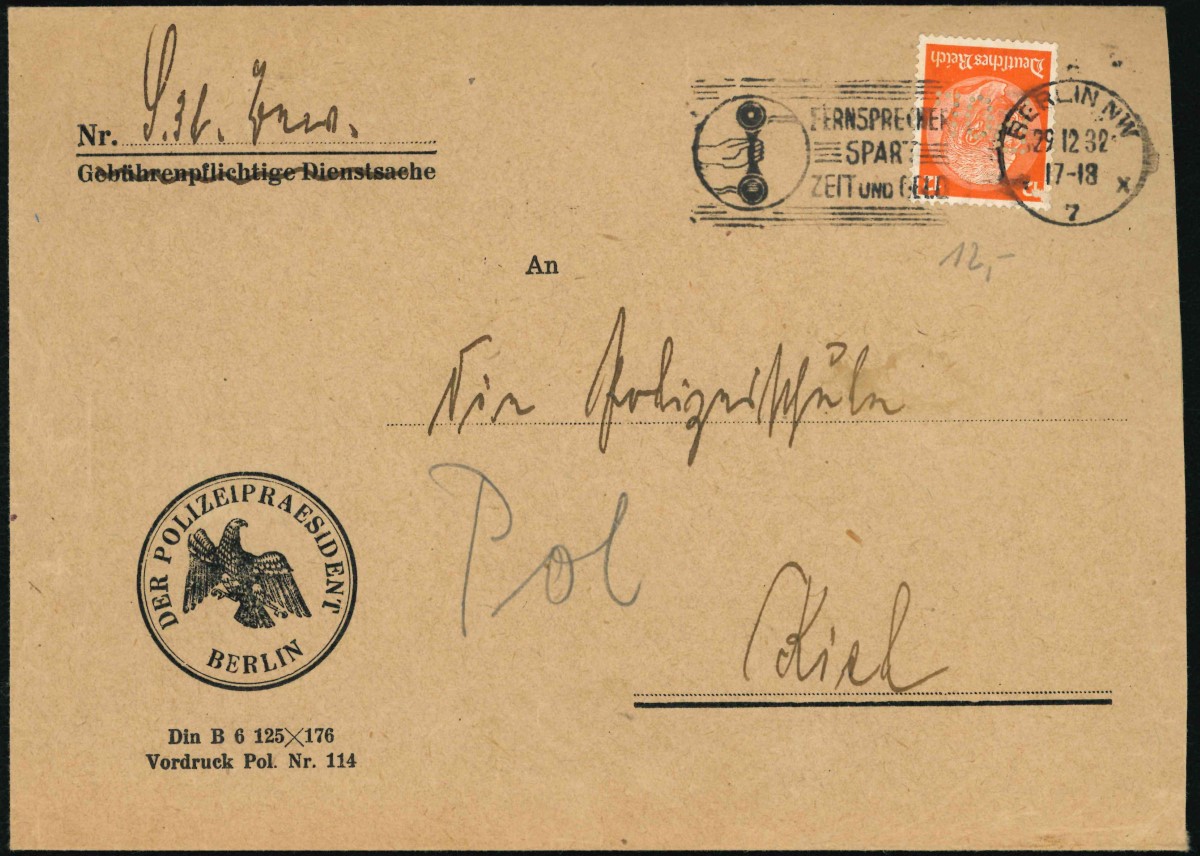 Nr. S. 3b.
Gebührenpflichtige Dienstsache
Deutsches Reich
FERNSPRECHER
SPART
ZEIT UND GELD
BERLIN NW
29.12.32
17-18
7 x
12,-
An
Die Polizeischule
Pol
Kiel
DER POLIZEIPRAESIDENT
BERLIN
Din B 6 125×176
Vordruck Pol. Nr. 114